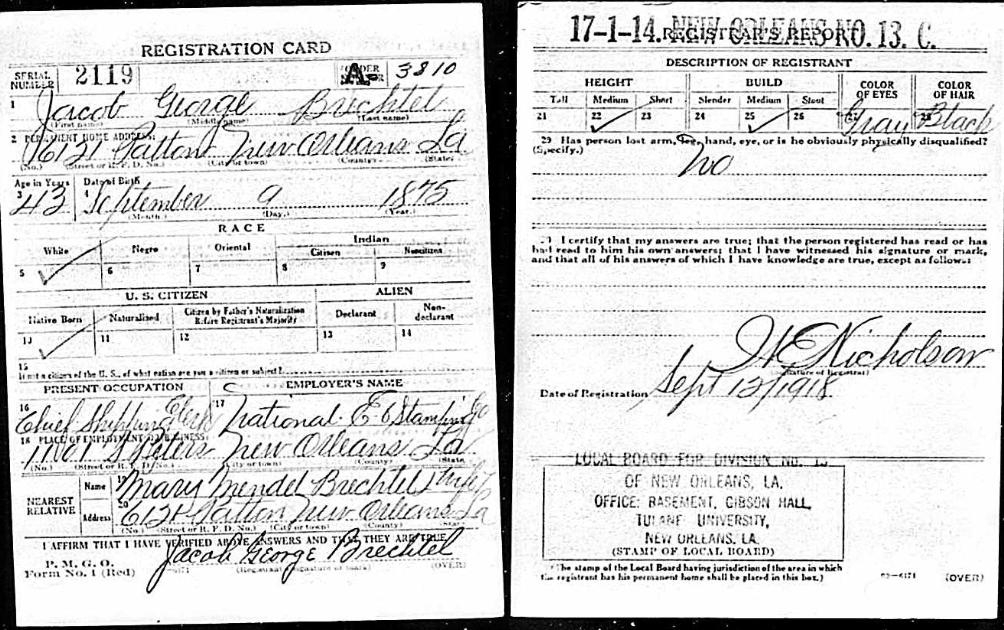 REGISTRATION CARD
SERIAL NUMBER 2119 ORDER NUMBER A- 3810
1 Jacob George Brechtel
(First name) (Middle name) (Last name)
2 PERMANENT HOME ADDRESS:
6121 Patton New Orleans La
(No.) (Street or R. F. D. No.) (City or town) (County) (State)
Age in Years Date of Birth
3 43 4 September 9 1875
(Month.) (Day.) (Year.)
RACE
White Negro Oriental Indian
Citizen Noncitizen
5 ✓ 6 7 8 9
U. S. CITIZEN ALIEN
Native Born Naturalized Citizen by Father's Naturalization Before Registrant's Majority Declarant Non-declarant
10 ✓ 11 12 13 14
15
If not a citizen of the U. S., of what nation are you a citizen or subject?
PRESENT OCCUPATION EMPLOYER'S NAME
16 Chief Shipping Clerk 17 National E & Stamping Co
18 PLACE OF EMPLOYMENT OR BUSINESS:
Peters New Orleans La
(No.) (Street or R. F. D. No.) (City or town) (County) (State)
NEAREST RELATIVE
Name 19 Mary Mendel Brechtel Wife
Address 20 6121 Patton New Orleans La
(No.) (Street or R. F. D. No.) (City or town) (County) (State)
I AFFIRM THAT I HAVE VERIFIED ABOVE ANSWERS AND THAT THEY ARE TRUE
P. M. G. O.
Form No. 1 (Red) Jacob George Brechtel
(Registrant's signature or mark) (OVER)
17-1-14. NEW ORLEANS NO. 13. C.
REGISTRAR'S REPORT
DESCRIPTION OF REGISTRANT
HEIGHT BUILD COLOR OF EYES COLOR OF HAIR
Tall Medium Short Slender Medium Stout
21 22 ✓ 23 24 25 ✓ 26 27 Gray 28 Black
29 Has person lost arm, leg, hand, eye, or is he obviously physically disqualified?
(Specify.) No
30 I certify that my answers are true; that the person registered has read or has
had read to him his own answers; that I have witnessed his signature or mark,
and that all of his answers of which I have knowledge are true, except as follows:
H E Nicholson
(Signature of Registrar)
Date of Registration Sept 12/1918
LOCAL BOARD FOR DIVISION NO. 13
OF NEW ORLEANS, LA.
OFFICE: BASEMENT, GIBSON HALL,
TULANE UNIVERSITY,
NEW ORLEANS, LA.
(STAMP OF LOCAL BOARD)
(The stamp of the Local Board having jurisdiction of the area in which
the registrant has his permanent home shall be placed in this box.)
(OVER)